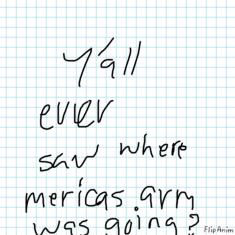 Y'all
ever
saw where
mericas arm
was going?
FlipAnim